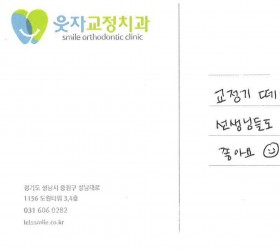 웃자교정치과
smile orthodontic clinic
교정기 떼
선생님들도
좋아요
경기도 성남시 중원구 성남대로
1156 도원타워 3,4층
031 606 0282